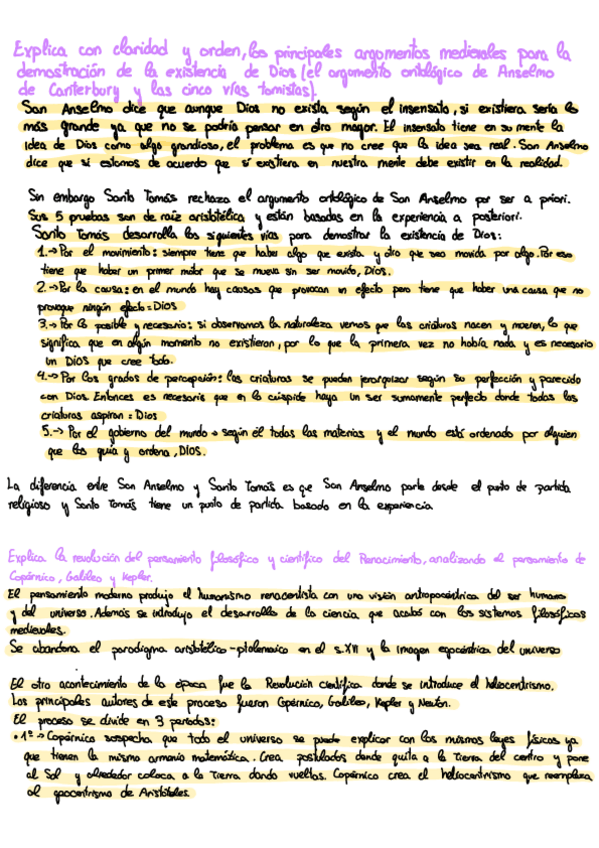 Explica con claridad y orden, los principales argumentos medievales para la
demostración de la existencia de Dios (el argumento ontológico de Anselmo
de Canterbury y las cinco vías tomistas).
San Anselmo dice que aunque Dios no exista según el insensato, si existiera sería lo
más grande ya que no se podría pensar en otro mayor. El insensato tiene en su mente la
idea de Dios como algo grandioso, el problema es que no cree que la idea sea real. San Anselmo
dice que si estamos de acuerdo que si existiera en nuestra mente debe existir en la realidad.
Sin embargo Santo Tomás rechaza el argumento ontológico de San Anselmo por ser a priori.
Sus 5 pruebas son de raíz aristotélica y están basadas en la experiencia a posteriori.
Santo Tomás desarrolla las siguientes vías para demostrar la existencia de Dios:
1.→Por el movimiento: siempre tiene que haber algo que exista y otro que sea movida por algo. Por eso
tiene que haber un primer motor que se mueva sin ser movido, Dios.
2.→Por la causa: en el mundo hay causas que provocan un efecto pero tiene que haber una causa que no
provoque ningún efecto=Dios
3.→Por lo posible y necesario: si observamos la naturaleza vemos que las criaturas nacen y mueren, lo que
significa que en algún momento no existieron, por lo que la primera vez no había nada y es necesario
un DIOS que cree todo.
4.→Por los grados de percepción: las criaturas se pueden jerarquizar según su perfección y parecido
con Dios. Entonces es necesario que en la cúspide haya un ser sumamente perfecto donde todas las
criaturas aspiran = Dios
5.→ Por el gobierno del mundo → según él todas las materias y el mundo está ordenado por alguien
que los guía y ordena, DIOS.
La diferencia entre San Anselmo y Santo Tomás es que San Anselmo parte desde el punto de partida
religioso y Santo Tomás tiene un punto de partida basado en la experiencia
Explica la revolución del pensamiento filosófico y científico del Renacimiento, analizando el pensamiento de
Copérnico, Galileo y Kepler.
El pensamiento moderno produjo el humanismo renacentista con una visión antropocéntrica del ser humano
y del universo. Además se introdujo el desarrollo de la ciencia que acabó con los sistemas filosóficos
medievales.
Se abandona el paradigma aristotélico-ptolemaico en el s.XVI y la imagen egocéntrica del universo
El otro acontecimiento de la época fue la Revolución científica donde se introduce el heliocentrismo.
Los principales autores de este proceso fueron Copérnico, Galileo, Kepler y Newton.
El proceso se divide en 3 periodos:
• 1º → Copérnico sospecha que todo el universo se puede explicar con las mismas leyes físicas ya
que tienen la misma armonía matemática. Crea postulados donde quita a la Tierra del centro y pone
al Sol y alrededor coloca a la Tierra dando vueltas. Copérnico crea el heliocentrismo que reemplaza
al geocentrismo de Aristóteles.